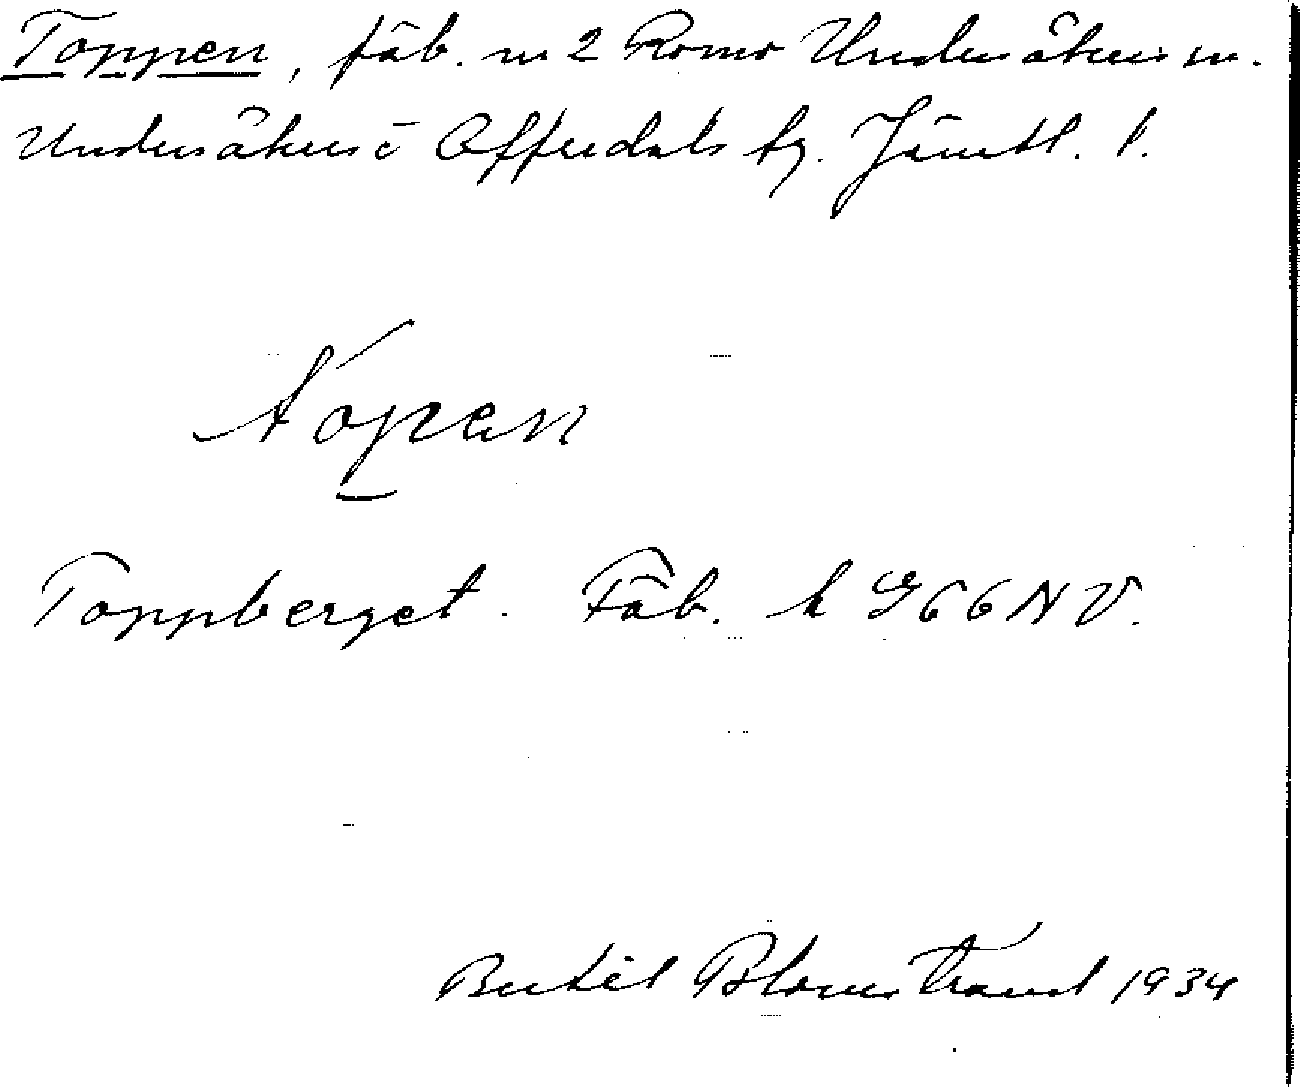 Toppen, fäb. nr 2 Romo Undersåkers sn.
Undersåkers o Offerdals tg. Jämtl. l.
tópen
Toppberget. Fäb. k G66NV.
Bertil Blomstrand 1934